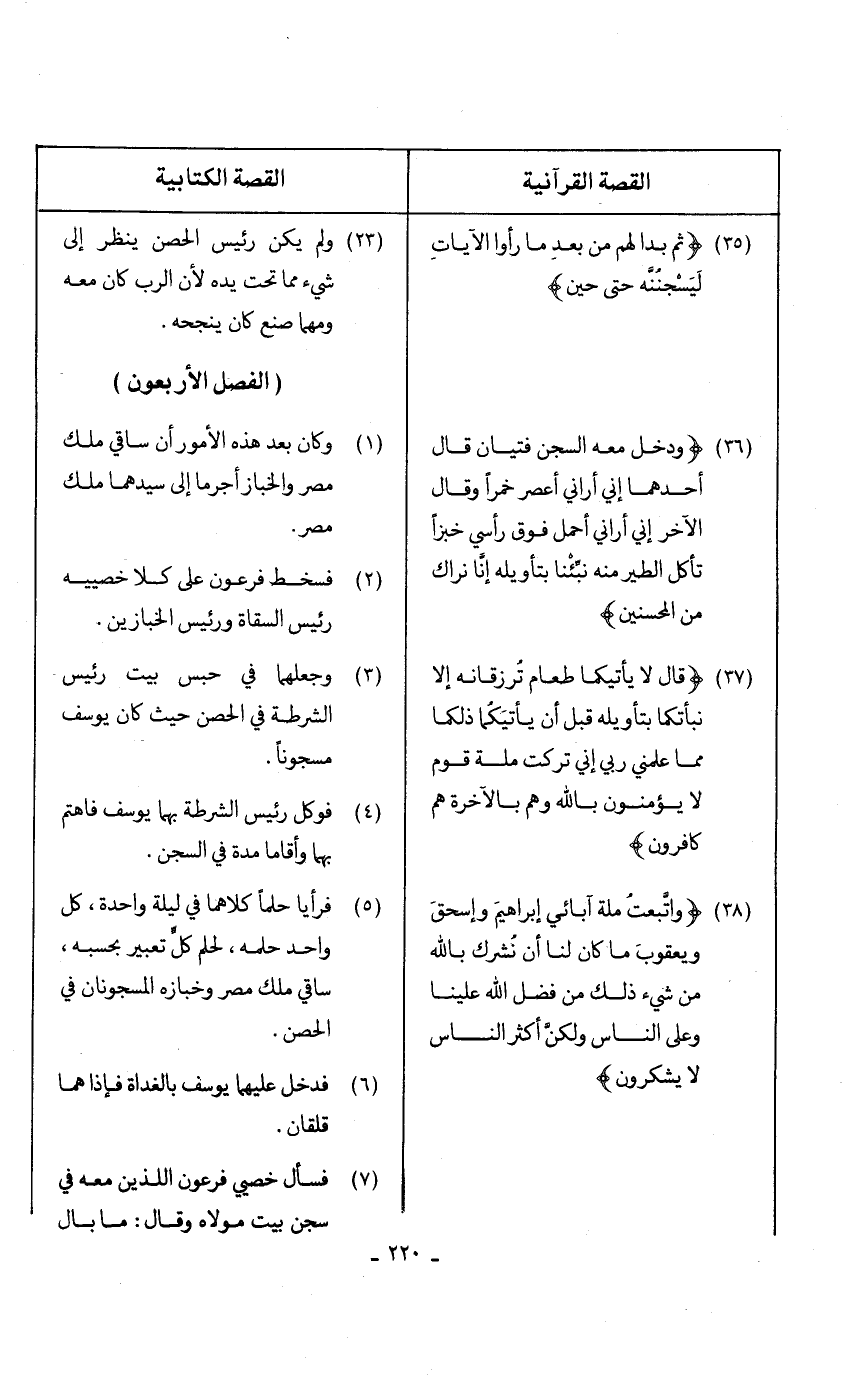 القصة القرآنية
(٣٥) ﴿ ثم بدا لهم من بعدِ ما رأوا الآياتِ
لَيَسْجنُنَّه حتى حين ﴾
(٣٦) ﴿ ودخل معه السجن فتيان قال
أحدهما إني أراني أعصر خمراً وقال
الآخر إني أراني أحمل فوق رأسي خبزاً
تأكل الطير منه نبِّئْنا بتأويله إنَّا نراك
من المحسنين ﴾
(٣٧) ﴿ قال لا يأتيكما طعام تُرزقانه إلا
نبأتكما بتأويله قبل أن يأتيَكُما ذلكما
مما علمني ربي إني تركت ملة قوم
لا يؤمنون بالله وهم بالآخرة هم
كافرون ﴾
(٣٨) ﴿ واتَّبعتُ ملة آبائي إبراهيمَ وإسحقَ
ويعقوبَ ما كان لنا أن نُشرك بالله
من شيء ذلك من فضل الله علينا
وعلى الناس ولكنَّ أكثر الناس
لا يشكرون ﴾
القصة الكتابية
(٢٣) ولم يكن رئيس الحصن ينظر إلى
شيء مما تحت يده لأن الرب كان معه
ومهما صنع كان ينجحه .
( الفصل الأربعون )
(١) وكان بعد هذه الأمور أن ساقي ملك
مصر والخباز أجرما إلى سيدهما ملك
مصر.
(٢) فسخط فرعون على كلا خصييه
رئيس السقاة ورئيس الخبازين .
(٣) وجعلهما في حبس بيت رئيس
الشرطة في الحصن حيث كان يوسف
مسجوناً .
(٤) فوكل رئيس الشرطة بهما يوسف فاهتم
بهما وأقاما مدة في السجن .
(٥) فرأيا حلماً كلاهما في ليلة واحدة ، كل
واحد حلمه ، لحلم كلٍّ تعبير بحسبه ،
ساقي ملك مصر وخبازه المسجونان في
الحصن .
(٦) فدخل عليهما يوسف بالغداة فإذا هما
قلقان .
(٧) فسأل خصيي فرعون اللذين معه في
سجن بيت مولاه وقال : ما بال
ـ ٢٢٠ ـ